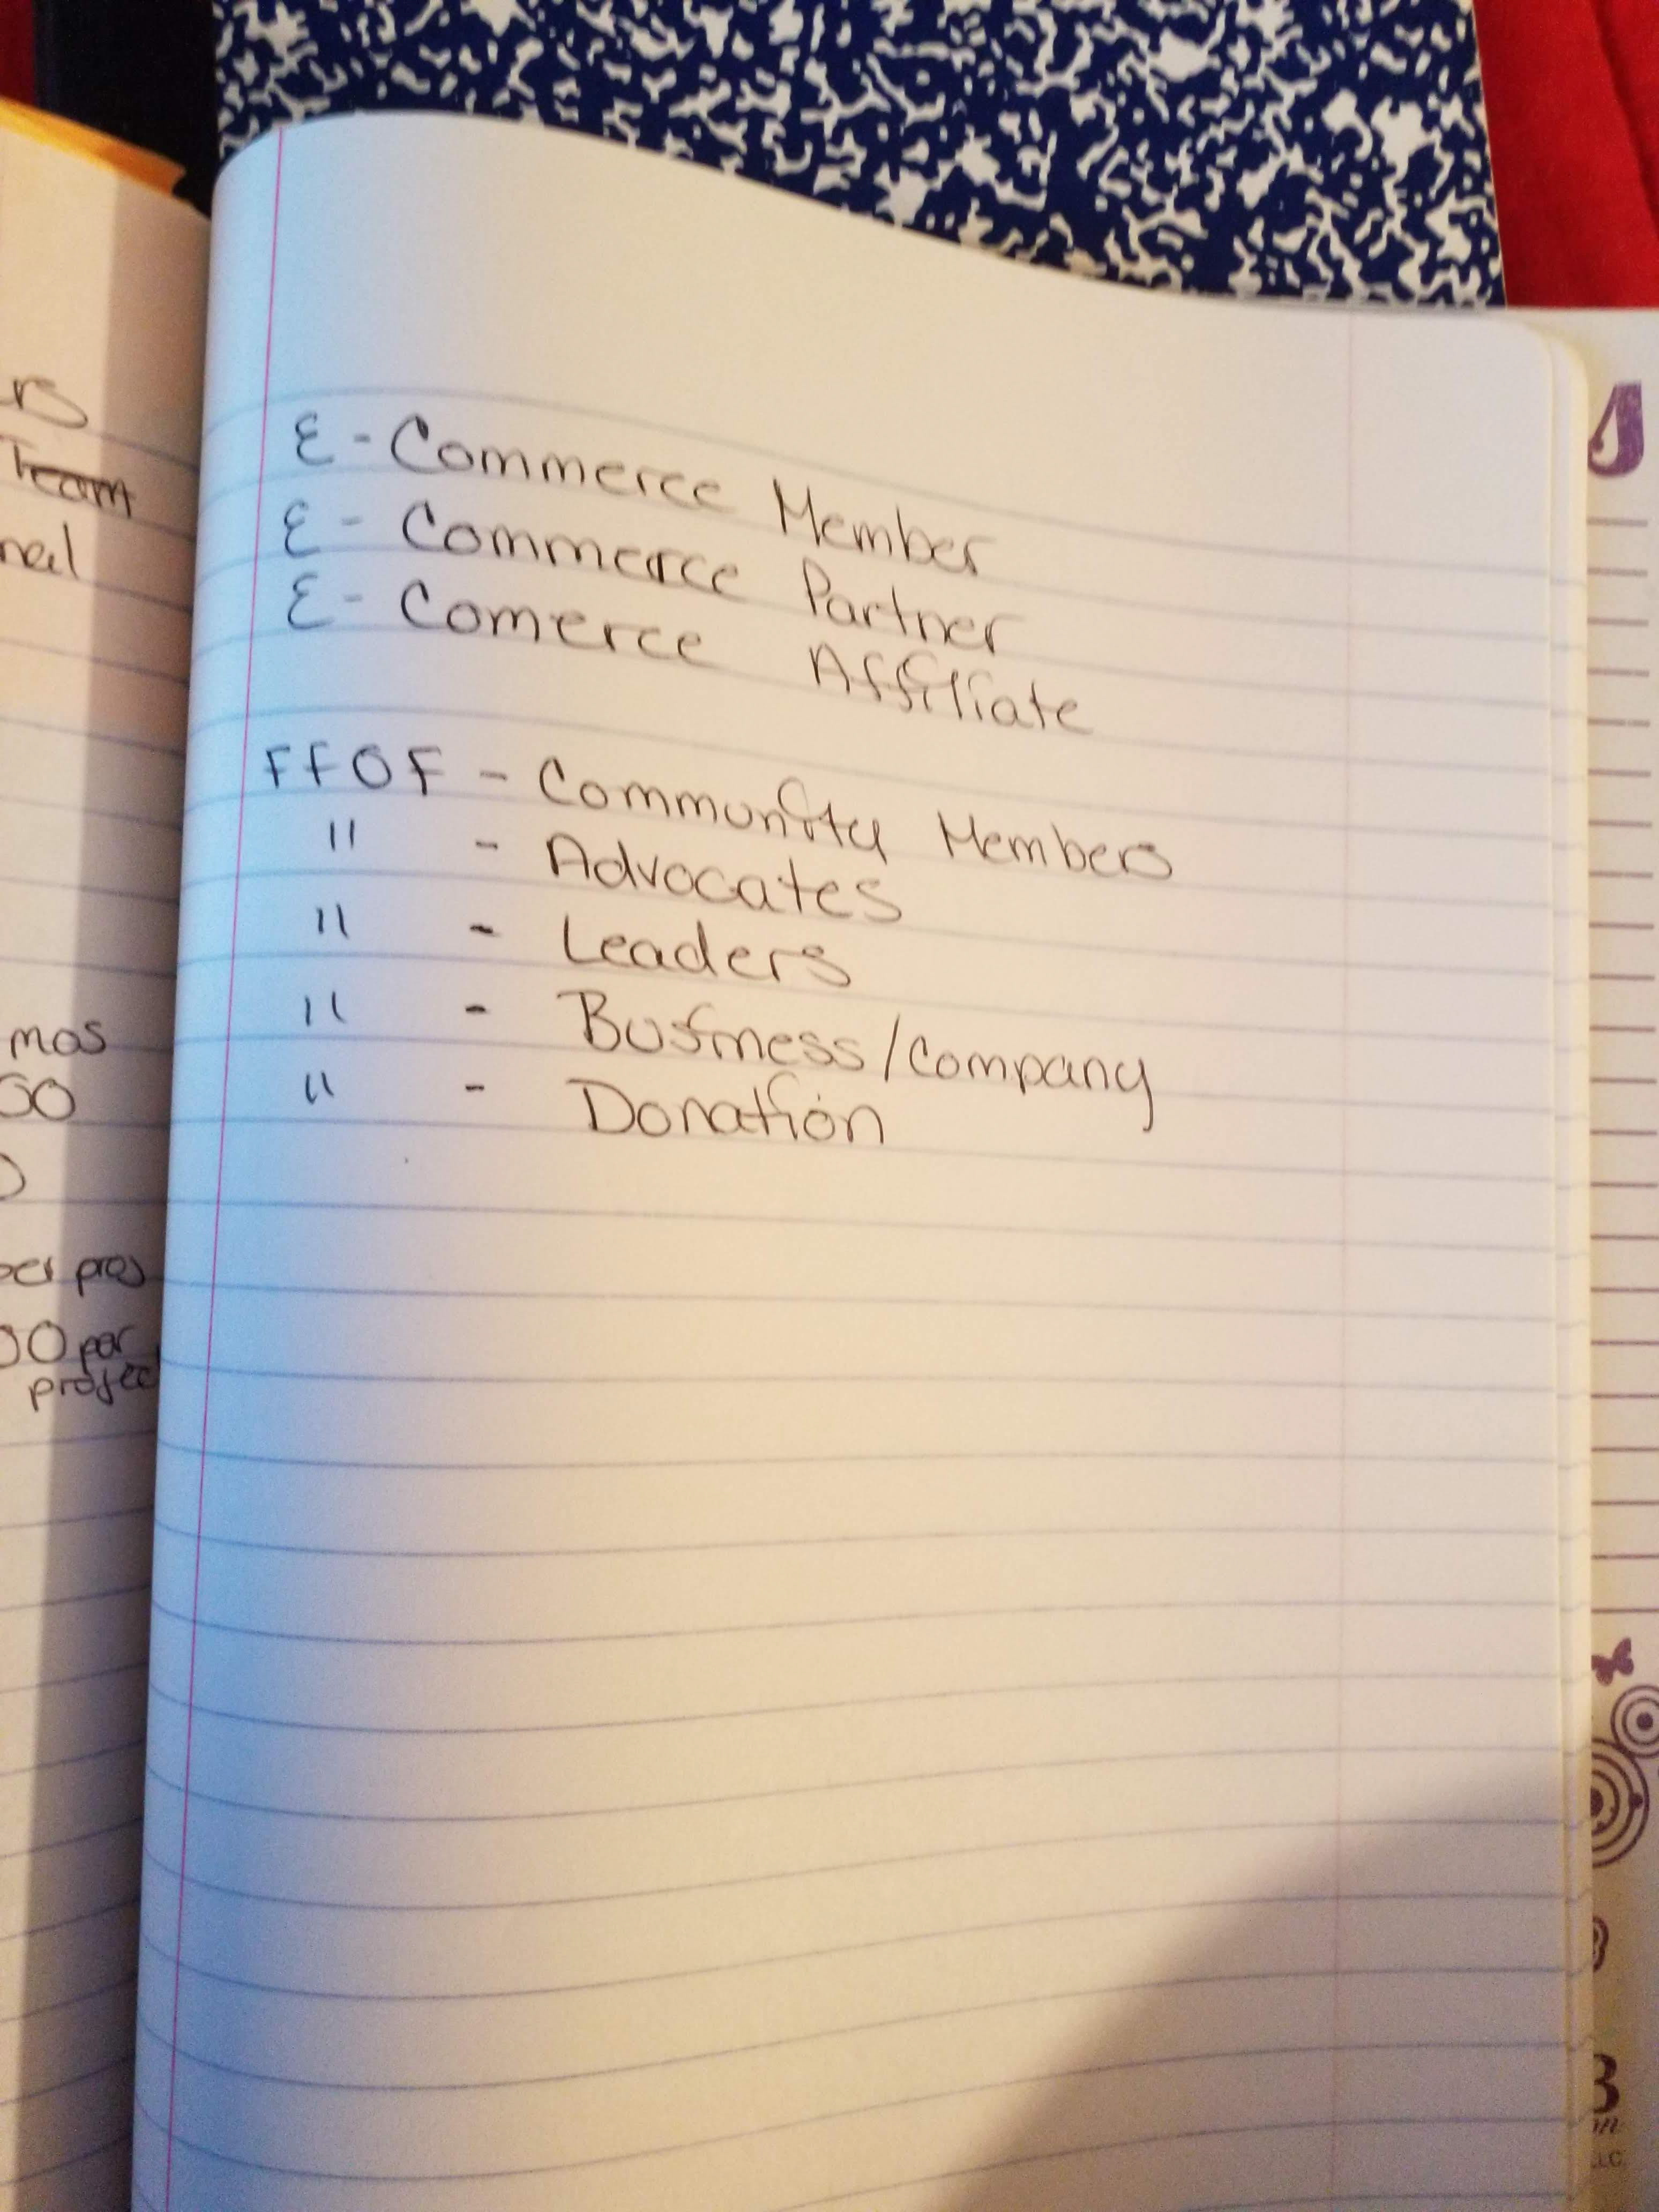 rs
Team
mos
per proj
00 per
projec
E-Commerce Member
E-Commerce Partner
E-Comerce Affiliate
FFOF - Community Members
" - Advocates
" - Leaders
" - Business/Company
" - Donation
B
LLC